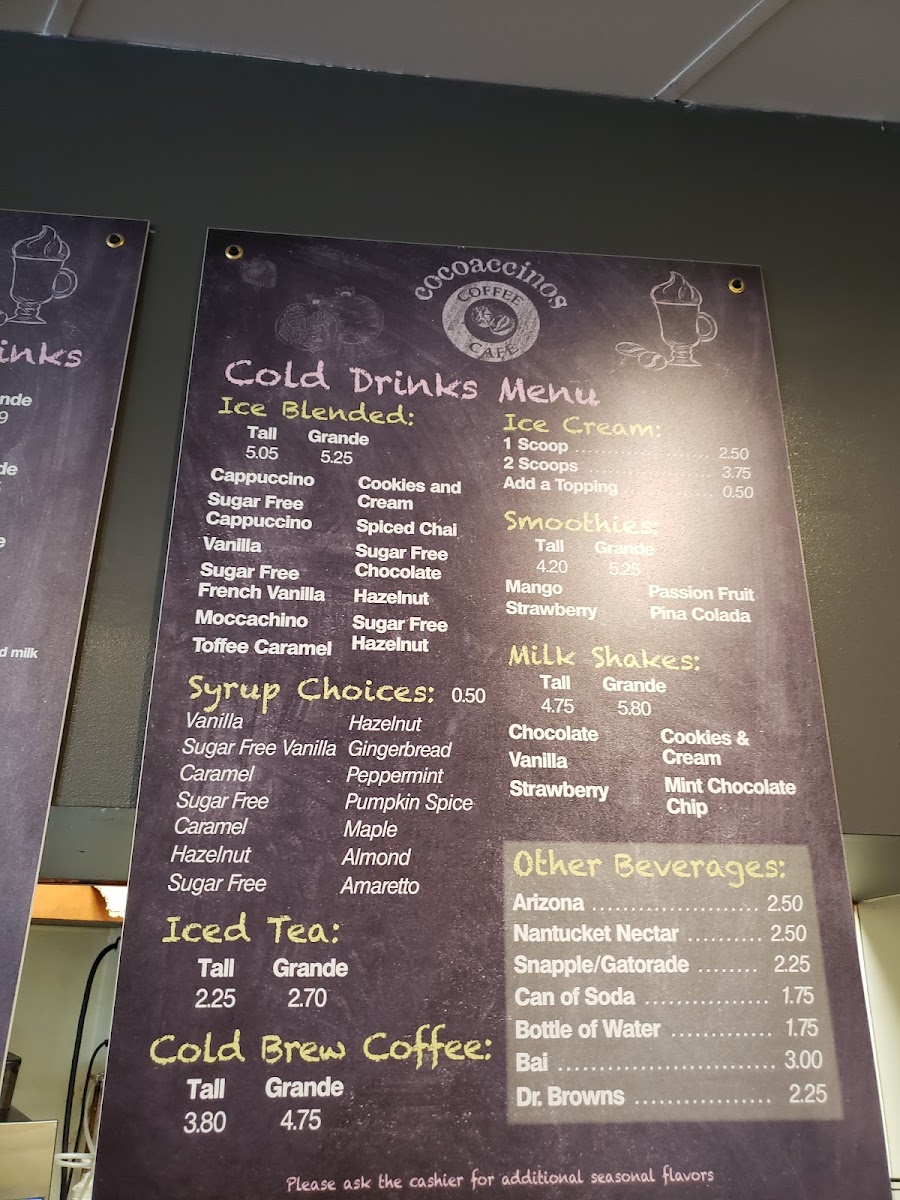 inks
nde
9
de
e
d milk
cocoaccinos
COFFEE
CAFÉ
Cold Drinks Menu
Ice Blended:
Tall Grande
5.05 5.25
Cappuccino
Sugar Free
Cappuccino
Vanilla
Sugar Free
French Vanilla
Moccachino
Toffee Caramel
Cookies and
Cream
Spiced Chai
Sugar Free
Chocolate
Hazelnut
Sugar Free
Hazelnut
Syrup Choices: 0.50
Vanilla
Sugar Free Vanilla
Caramel
Sugar Free
Caramel
Hazelnut
Sugar Free
Hazelnut
Gingerbread
Peppermint
Pumpkin Spice
Maple
Almond
Amaretto
Iced Tea:
Tall Grande
2.25 2.70
Cold Brew Coffee:
Tall Grande
3.80 4.75
Ice Cream:
1 Scoop ........................ 2.50
2 Scoops ........................ 3.75
Add a Topping ............... 0.50
Smoothies:
Tall Grande
4.20 5.25
Mango Passion Fruit
Strawberry Pina Colada
Milk Shakes:
Tall Grande
4.75 5.80
Chocolate
Vanilla
Strawberry
Cookies &
Cream
Mint Chocolate
Chip
Other Beverages:
Arizona ...................... 2.50
Nantucket Nectar .......... 2.50
Snapple/Gatorade ........ 2.25
Can of Soda ................ 1.75
Bottle of Water ............. 1.75
Bai ............................ 3.00
Dr. Browns .................. 2.25
Please ask the cashier for additional seasonal flavors